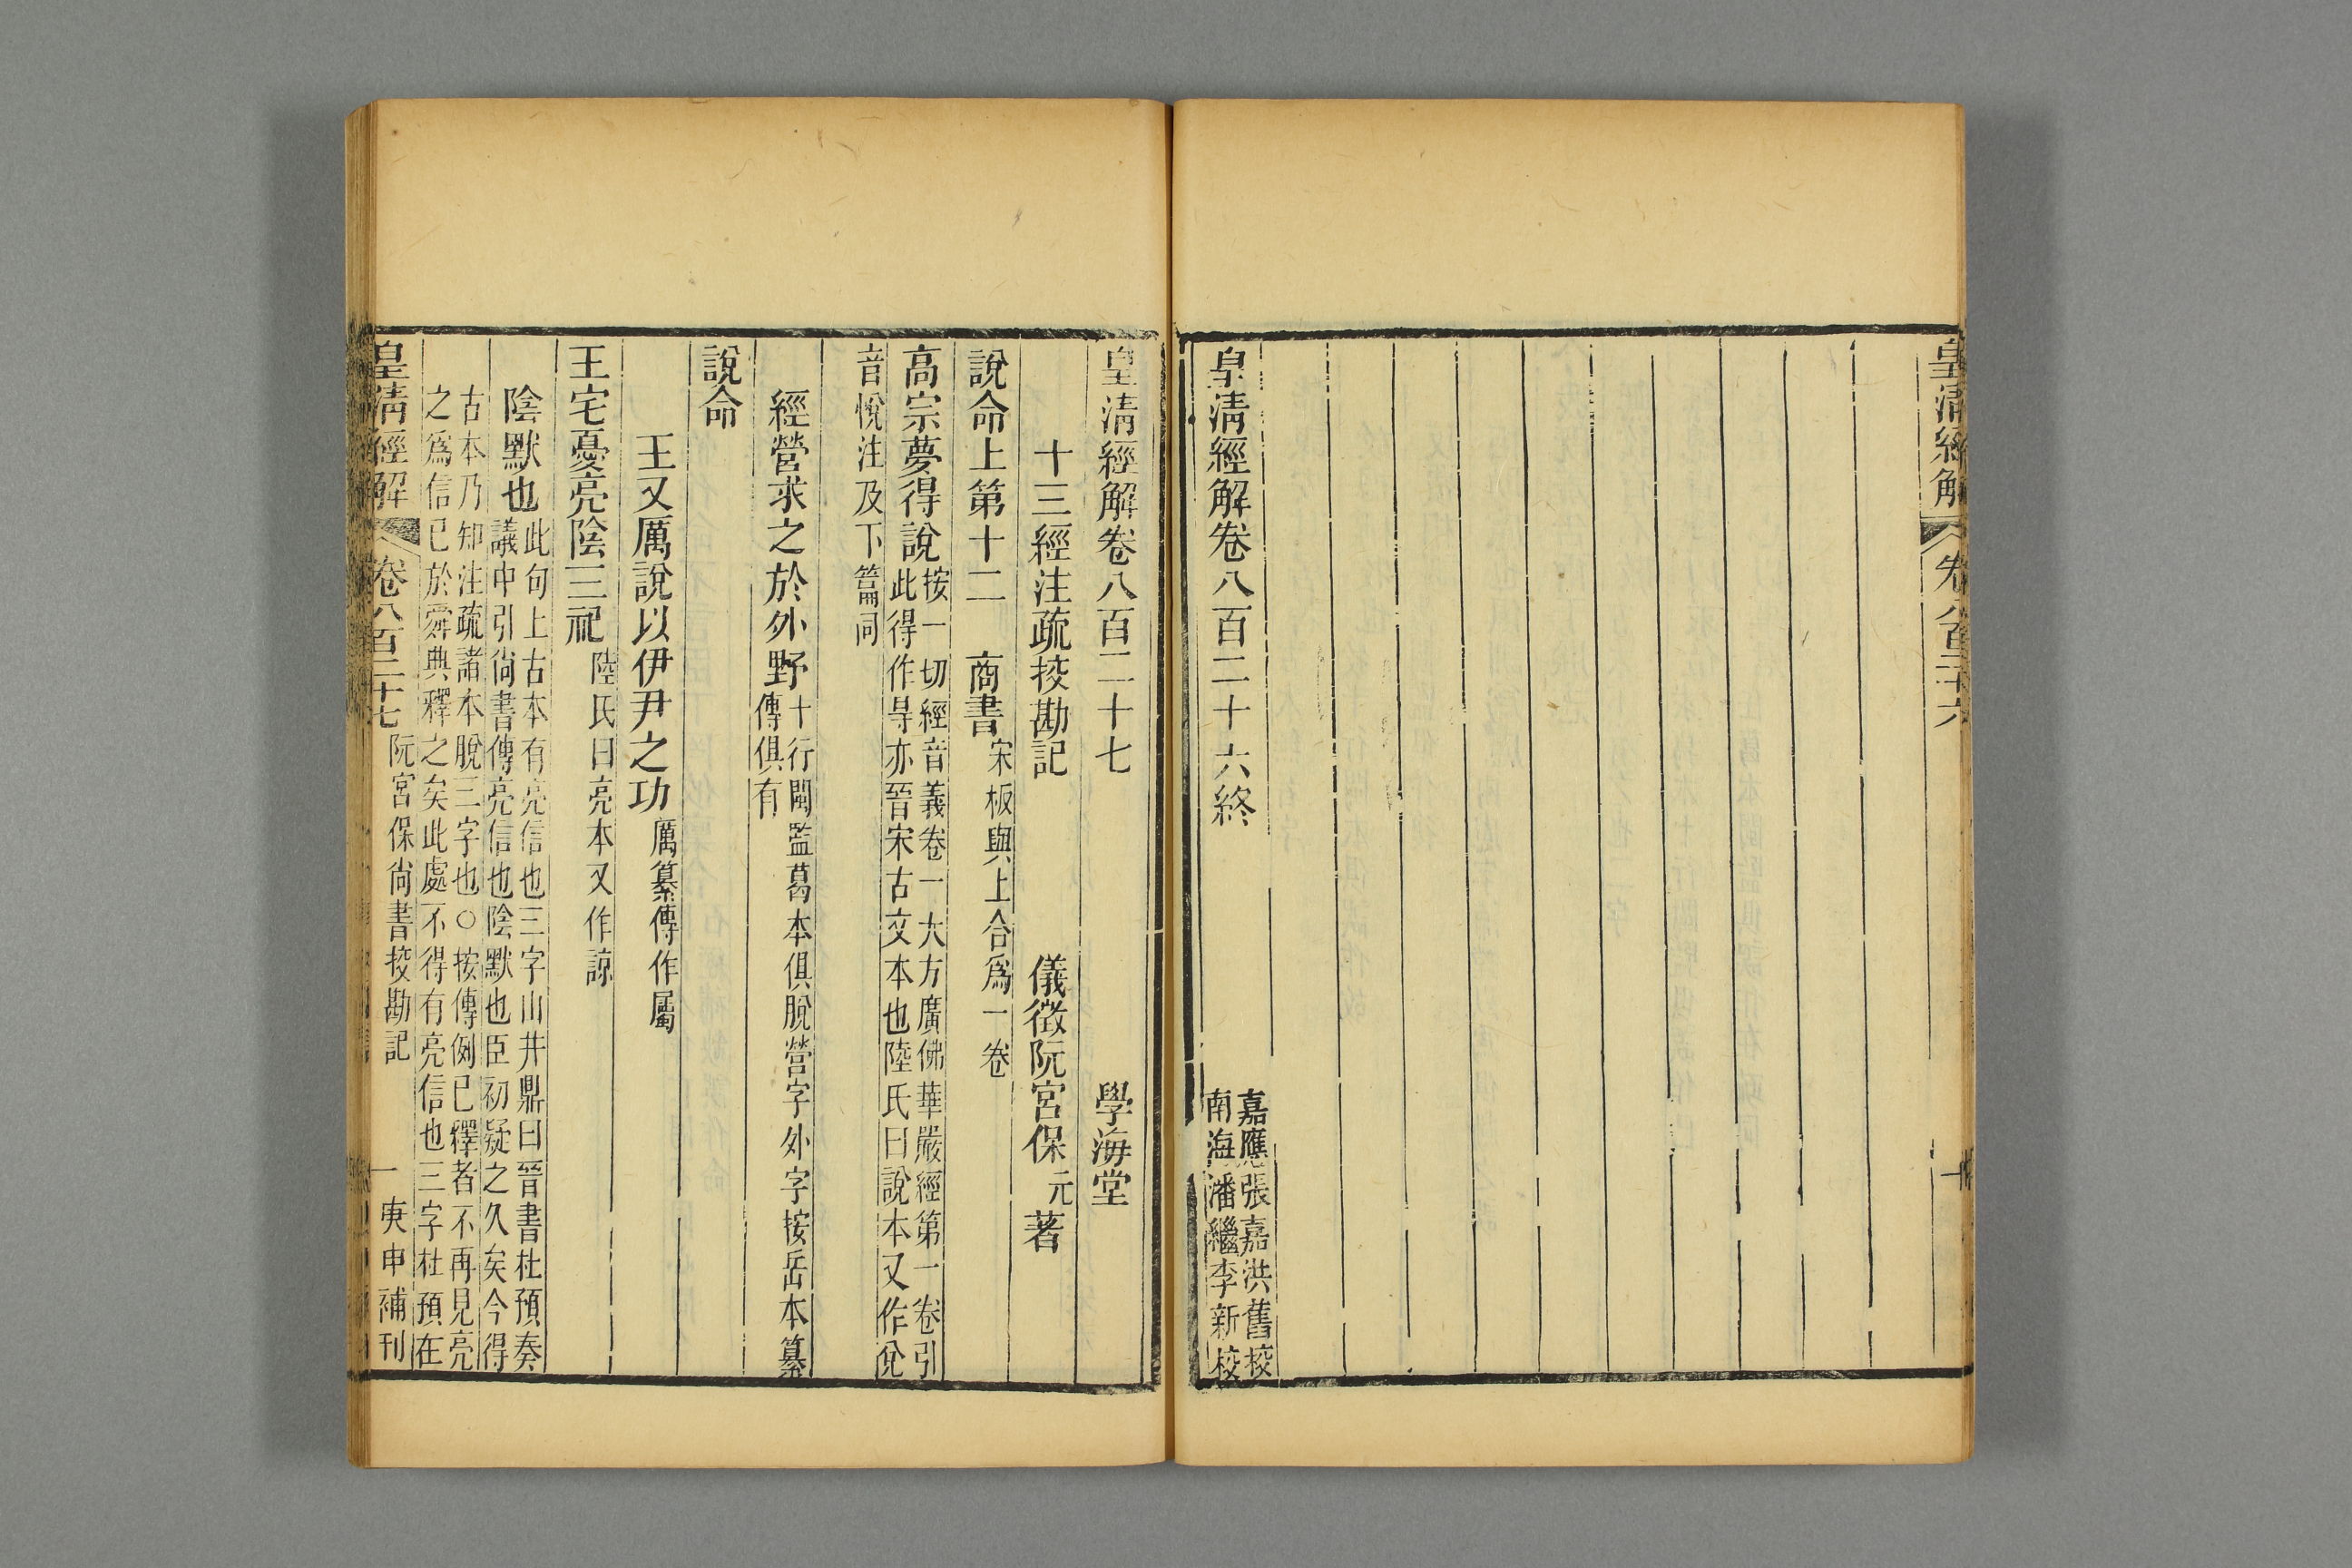 皇清經解
卷八百二十六
皇清經解卷八百二十六終
嘉應張嘉洪舊挍
南海潘繼李新挍
皇清經解卷八百二十七
學海堂
十三經注疏挍勘記
儀徵阮宮保元著
說命上第十二
商書
宋板與上合爲一卷
高宗夢得說
按一切經音義卷一大方廣佛華嚴經第一卷引
此得作㝵亦晉宋古文本也陸氏曰說本又作兌
音悅注及下篇同
經營求之於外野
十行閩監葛本俱脫營字外字按岳本纂
傳俱有
說命
王又厲說以伊尹之功
厲纂傳作屬
王宅憂亮陰三祀
陸氏曰亮本又作諒
陰默也
此句上古本有亮信也三字山井鼎曰晉書杜預奏
議中引尙書傳亮信也陰默也臣初疑之久矣今得
古本乃知注疏諸本脫三字也○按傳例已釋者不再見亮
之爲信已於舜典釋之矣此處不得有亮信也三字杜預在
皇清經解
卷八百二十七
阮宮保尙書挍勘記
一
庚申補刊